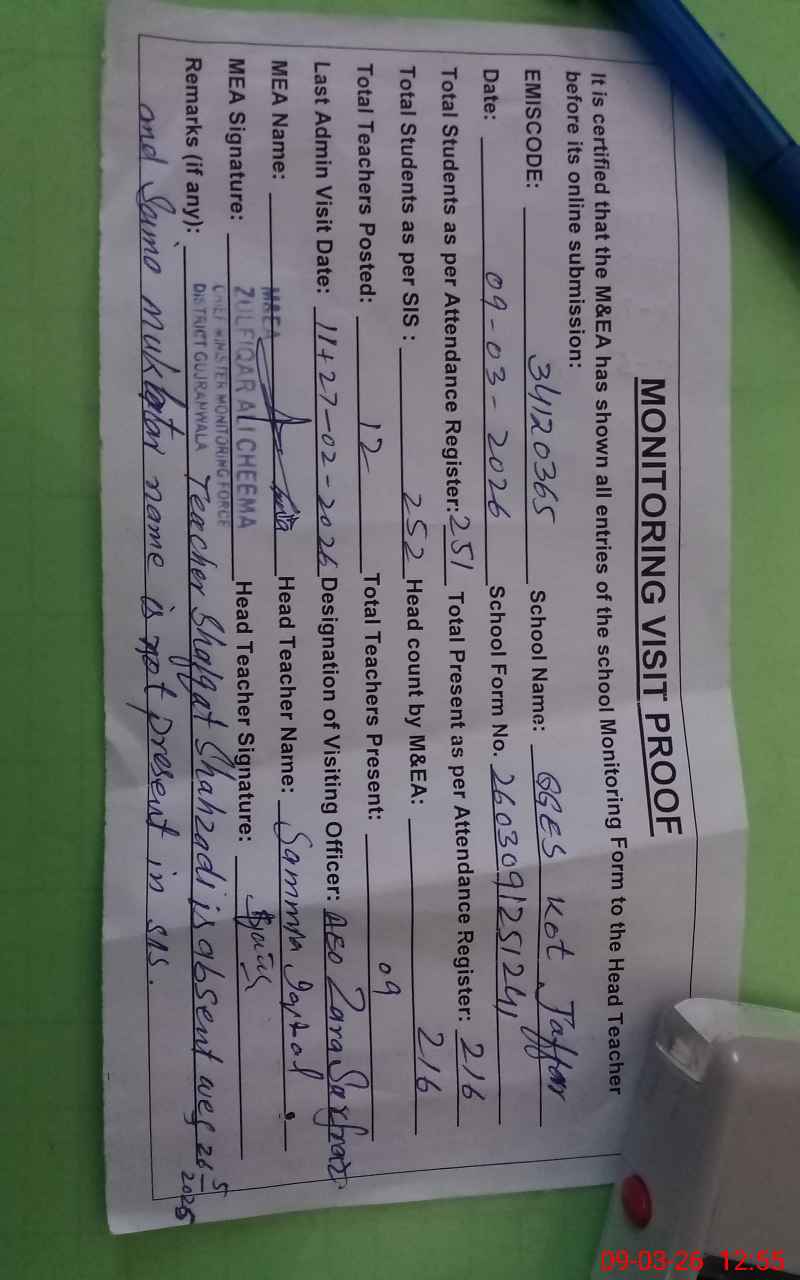 MONITORING VISIT PROOF
It is certified that the M&EA has shown all entries of the school Monitoring Form to the Head Teacher
before its online submission:
EMISCODE: 34120365 School Name: GGES Kot Jaffar
Date: 09-03-2026 School Form No. 260309125124,
Total Students as per Attendance Register: 251 Total Present as per Attendance Register: 216
Total Students as per SIS : 252 Head count by M&EA: 216
Total Teachers Posted: 12 Total Teachers Present: 09
Last Admin Visit Date: 11+27-02-2026 Designation of Visiting Officer: AEO Zara Sarfraz
MEA Name: Head Teacher Name:
MEA Signature: Head Teacher Signature:
M&EA
ZULFIQAR ALI CHEEMA
CHIEF MINISTER MONITORING FORCE
DISTRICT GUJRANWALA
Remarks (if any): Teacher Shafqat Shahzadi is absent wef 26 5 2025
and Saima mukhtar name is not present in SIS.
09-03-26 12:55